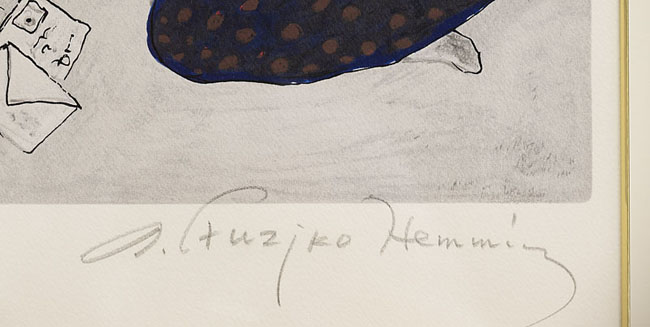 G. Fuzjko Hemming